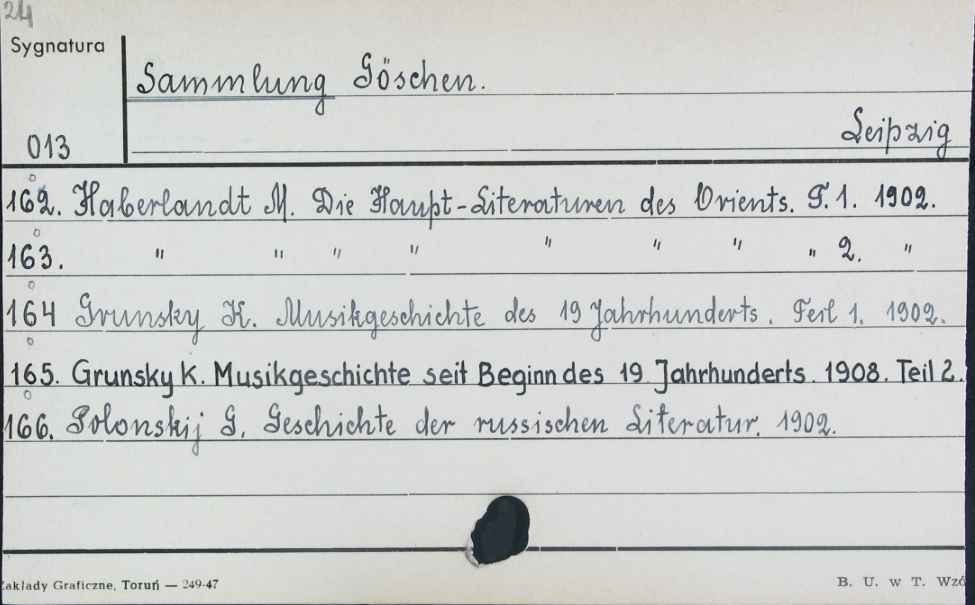 24
Sygnatura
Sammlung Göschen.
Leipzig
013
162. Haberlandt M. Die Haupt-Literaturen des Orients. T. 1. 1902.
163. " " " " " " " " 2. "
164 Grunsky K. Musikgeschichte des 19 Jahrhunderts. Teil 1. 1902.
165. Grunsky K. Musikgeschichte seit Beginn des 19 Jahrhunderts. 1908. Teil 2.
166. Polonskij G. Geschichte der russischen Literatur. 1902.
akłady Graficzne, Toruń — 249-47 B. U. w T. Wzó